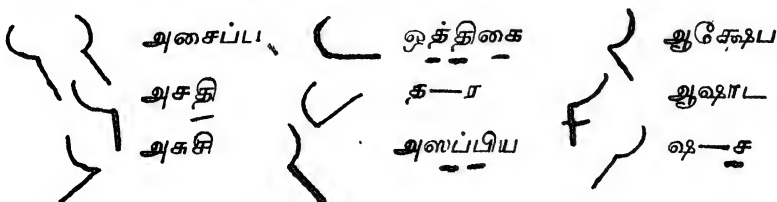 அசைப்ப ஒத்திகை ஆக்ஷேப
அசதி த—ர ஆஷாட
அசுசி அஸப்பிய ஷ—ச